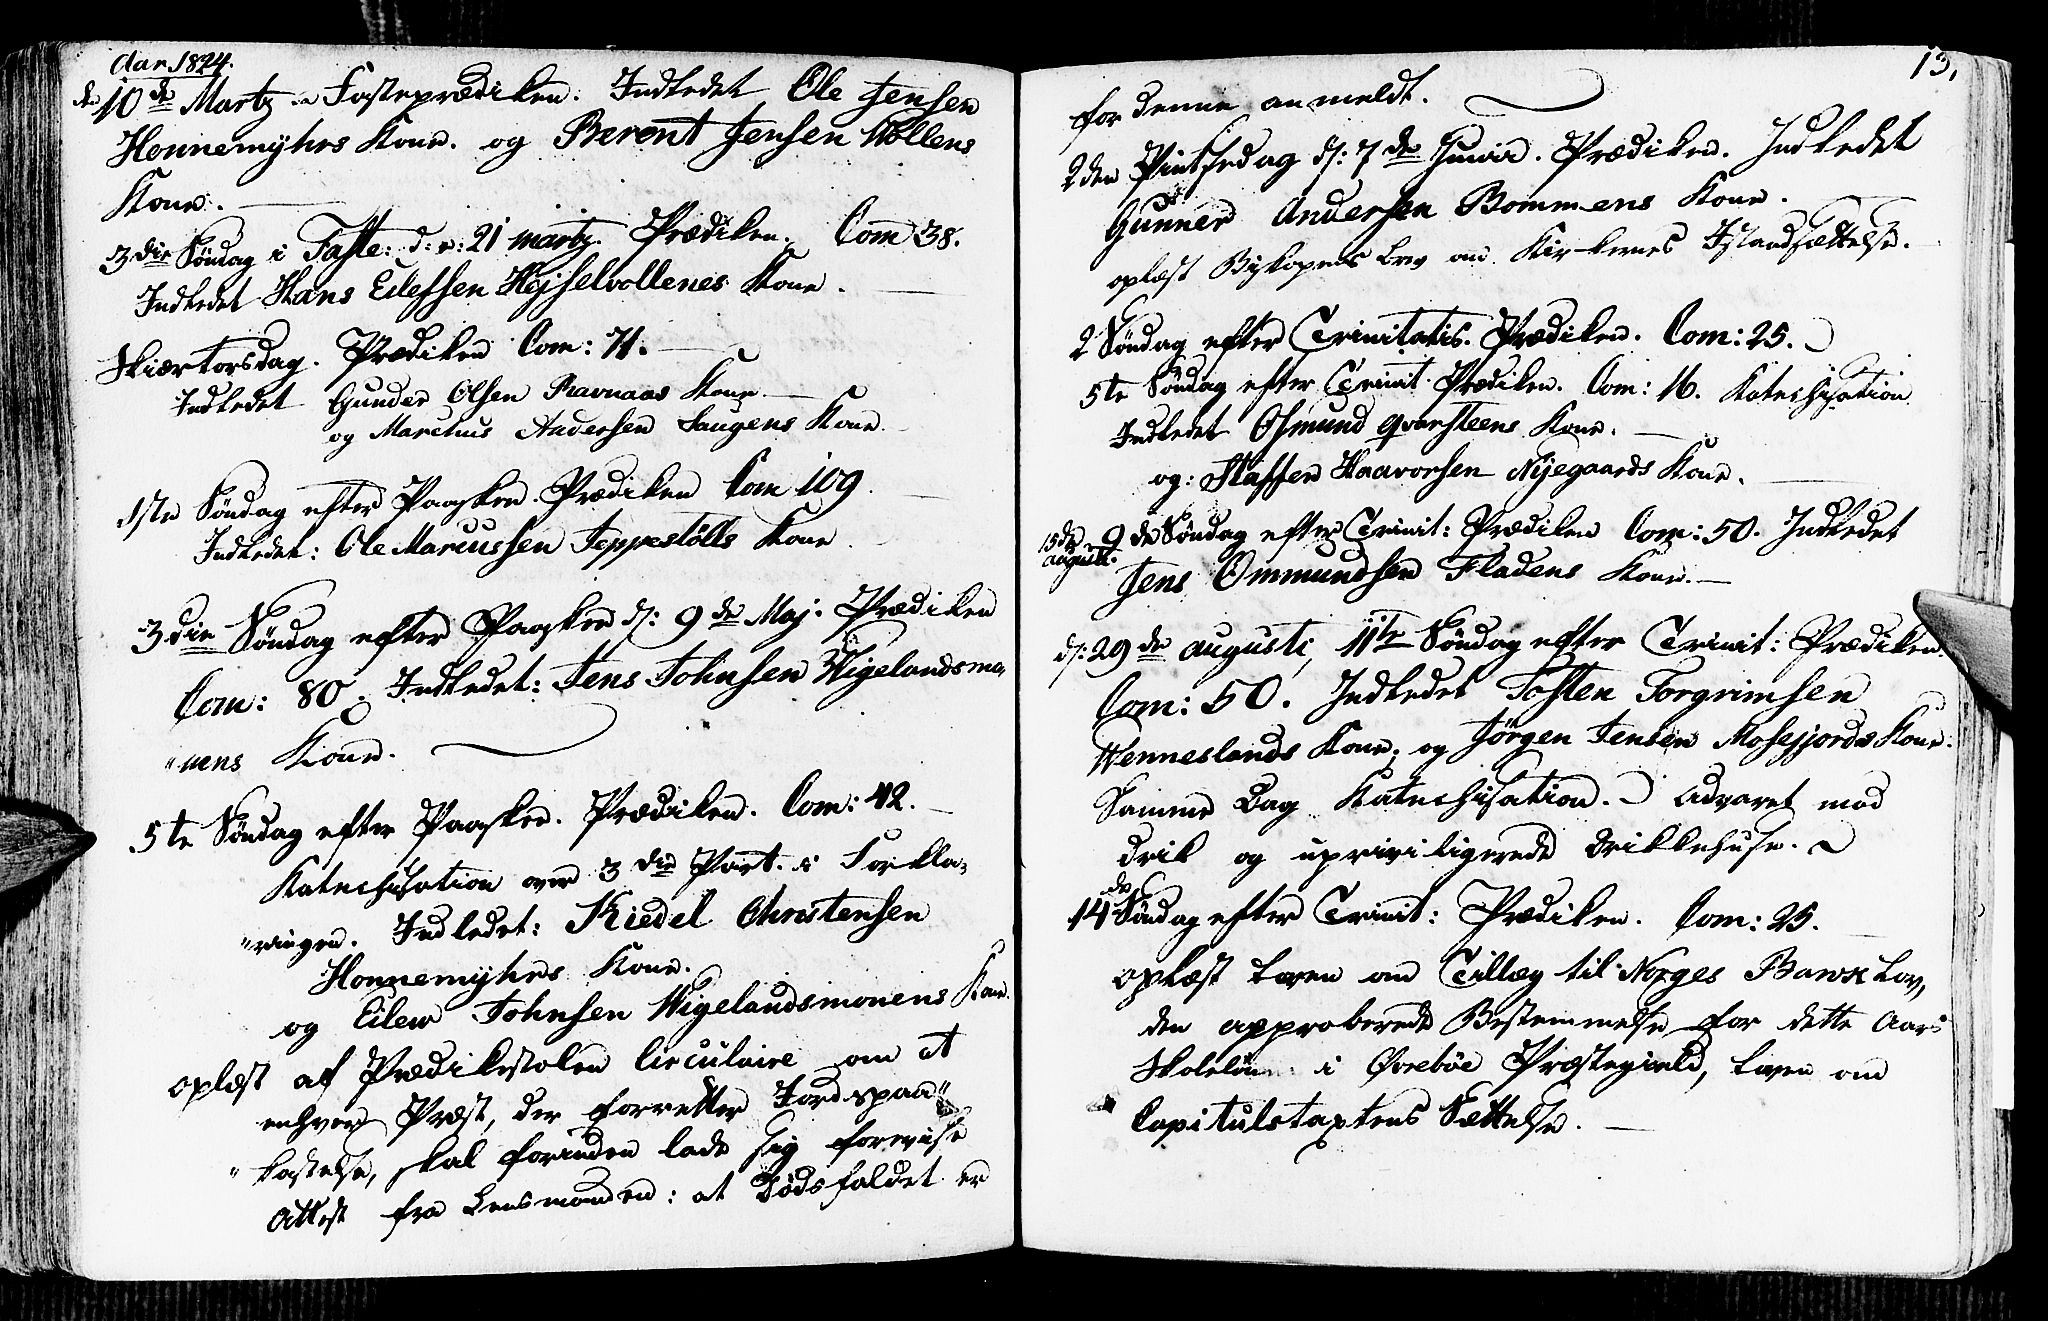 Aar 1824.
den 10de Martz en Fasteprædiken. Indledet Ole Jensen
Honnemyhrs Kone. og Berent Jensen Mollens
Kone.
3die Søndag i Faste: d: 21 martz. Prædiken. Com 38.
Indledet Hans Eilefsen Hejselvollenes Kone.
Skiærtorsdag. Prædiken Com: 71.
Indledet Gunder Olsen Ravnaas Kone
og Marcuus Andersen Haugens Kone.
1ste Søndag efter Paasken. Prædiken Com 109.
Indledet: Ole Marcussen Jeppestölls Kone
3die Søndag efter Paasken d: 9de Maj. Prædiken
Com: 80. Indledet: Jens Johnsen Wigelandsmo,
"nens Kone.
5te Søndag efter Paasken. Prædiken. Com: 42.
Katechisation over 3die Part i Forkla,
"ringen. Indledet: Kiedel Christensen
Honnemyhrs Kone.
og Eilew Johnsen Wigelandsmonens Kone.
oplæst af Prædikestolen Circulaire om at
enhver Præst, der forretter Jordspaa"
"kastelse, skal forinden lade sig forevise
Attest fra Lensmanden: at Dødsfaldet er
13,
for denne anmeldt.
2den Pintsedag d: 7de Junii. Prædiken. Indledet
Gunner Andersen Bommens Kone.
oplæst Biskopens brev om Kirkernes Istandsættelse.
2 Søndag efter Trinitatis. Prædiken. Com: 25.
5te Søndag efter Trinit Prædiken. Com: 16. Katechisation
Indledet Osmund Qvarsteens Kone.
og: Staffen Haavorsen Nyegaards Kone.
15de augusti. 9de Søndag efter Trinit: Prædiken Com: 50. Indledet
Jens Ommundsen Fladens Kone.
d: 29de augusti, 11te Søndag efter Trinit: Prædiken.
Com: 50. Indledet Tosten Torgrimsen
Wenneslands Kone, og Jörgen Jensen Mosefjords Kone.
Samme Dag Katechisation. Advaret mod
drik og upriviligerede Drikkehuse.
14de Søndag efter Trinit: Prædiken. Com: 25.
oplæst Loven om Tillæg til Norges Bank Lov,
den approberede Bestemmelse for dette Aars
Skolelön i Øvrebøe Præstegield, Loven om
Capitulstaxtens Sættelse.